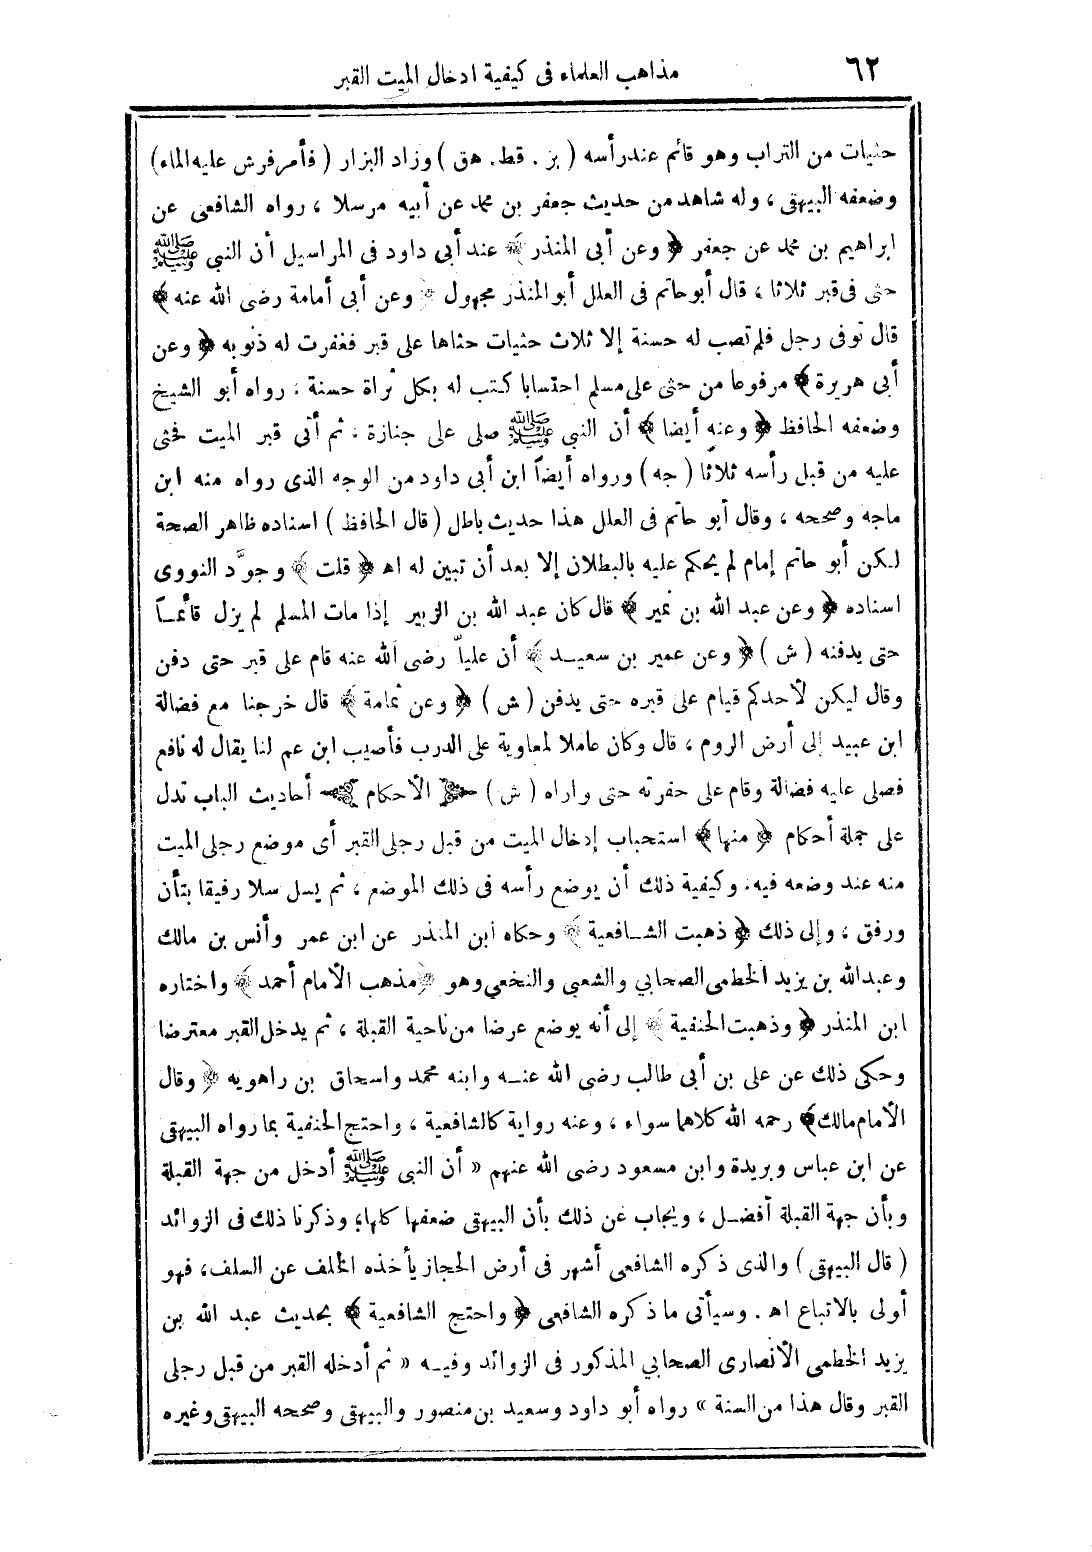 ٦٢
مذاهب العلماء فى كيفية ادخال الميت القبر
حثيات من التراب وهو قائم عند رأسه ( بز . قط . هق ) وزاد البزار ( فأمر فرش عليه الماء )
وضعفه البيهقى ، وله شاهد من حديث جعفر بن محمد عن أبيه مرسلا ، رواه الشافعى عن
ابراهيم بن محمد عن جعفر ﴿ وعن أبى المنذر ﴾ عند أبى داود فى المراسيل أن النبى ﷺ
حثى فى قبر ثلاثا ، قال أبو حاتم فى العلل أبو المنذر مجهول ﴿ وعن أبى أمامة رضى الله عنه ﴾
قال توفى رجل فلم تصب له حسنة إلا ثلاث حثيات حثاها على قبر فغفرت له ذنوبه ﴿ وعن
أبى هريرة ﴾ مرفوعا من حثى على مسلم احتسابا كتب له بكل ثراة حسنة ، رواه أبو الشيخ
وضعفه الحافظ ﴿ وعنه أيضا ﴾ أن النبى ﷺ صلى على جنازة ، ثم أتى قبر الميت فحثى
عليه من قبل رأسه ثلاثا ( جه ) ورواه أيضاً ابن أبى داود من الوجه الذى رواه منه ابن
ماجه وصححه ، وقال أبو حاتم فى العلل هذا حديث باطل ( قال الحافظ ) اسناده ظاهر الصحة
لكن أبو حاتم إمام لم يحكم عليه بالبطلان إلا بعد أن تبين له اهـ ﴿ قلت ﴾ وجوَّد النووى
اسناده ﴿ وعن عبد الله بن نمير ﴾ قال كان عبد الله بن الزبير إذا مات المسلم لم يزل قائمـاً
حتى يدفنه ( ش ) ﴿ وعن عمير بن سعيـد ﴾ أن علياً رضى الله عنه قام على قبر حتى دفن
وقال ليكن لأحدكم قيام على قبره حتى يدفن ( ش ) ﴿ وعن ثمامة ﴾ قال خرجنا مع فضالة
ابن عبيد إلى أرض الروم ، قال وكان عاملا لمعاوية على الدرب فأصيب ابن عم لنا يقال له نافع
فصلى عليه فضالة وقام على حفرته حتى واراه ( ش ) ﴿ الأحكام ﴾ أحاديث الباب تدل
على جملة أحكام ﴿ منها ﴾ استحباب إدخال الميت من قبل رجلى القبر أى موضع رجلى الميت
منه عند وضعه فيه. وكيفية ذلك أن يوضع رأسه فى ذلك الموضع ، ثم يسل سلا رفيقا بتأن
ورفق ، وإلى ذلك ﴿ ذهبت الشـافعية ﴾ وحكاه ابن المنذر عن ابن عمر وأنس بن مالك
وعبدالله بن يزيد الخطمى الصحابي والشعبى والنخعي وهو ﴿ مذهب الأمام أحمد ﴾ واختاره
ابن المنذر ﴿ وذهبت الحنفية ﴾ إلى أنه يوضع عرضا من ناحية القبلة ، ثم يدخل القبر معترضا
وحكى ذلك عن على بن أبى طالب رضى الله عنـه وابنه محمد واسحاق بن راهويه ﴿ وقال
الأمام مالك ﴾ رحمه الله كلاهما سواء ، وعنه رواية كالشافعية ، واحتج الحنفية بما رواه البيهقى
عن ابن عباس وبريدة وابن مسعود رضى الله عنهم « أن النبى ﷺ أدخل من جهة القبلة
وبأن جهة القبلة أفضـل ، ويجاب عن ذلك بأن البيهقى ضعفها كلها، وذكرنا ذلك فى الزوائد
( قال البيهقى ) والذى ذكره الشافعى أشهر فى أرض الحجاز يأخذه الخلف عن السلف، فهو
أولى بالاتباع اهـ . وسيأتى ما ذكره الشافعى ﴿ واحتج الشافعية ﴾ بحديث عبد الله بن
يزيد الخطمى الأنصارى الصحابي المذكور فى الزوائد وفيـه « ثم أدخله القبر من قبل رجلى
القبر وقال هذا من السنة » رواه أبو داود وسعيد بن منصور والبيهقى وصححه البيهقى وغيره